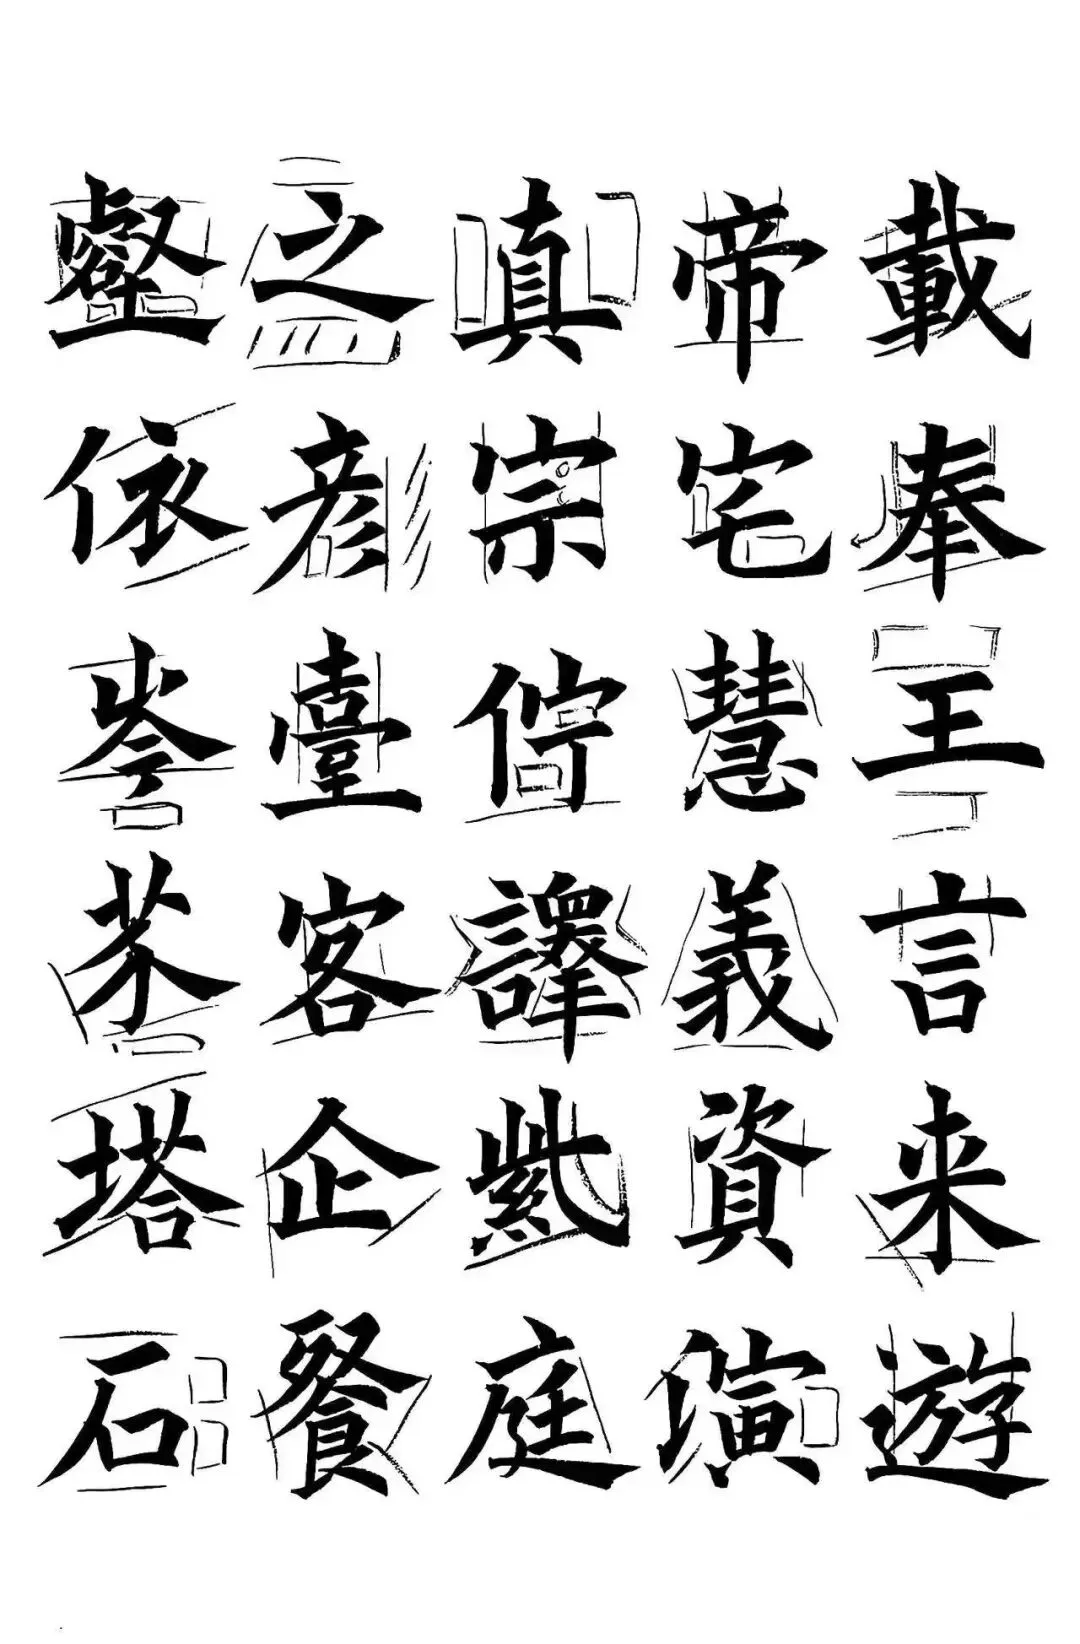 壑之真帝載
依彦宗宅奉
岺臺儜慧王
茶客譯義言
塔企紫資来
石餐庭演遊